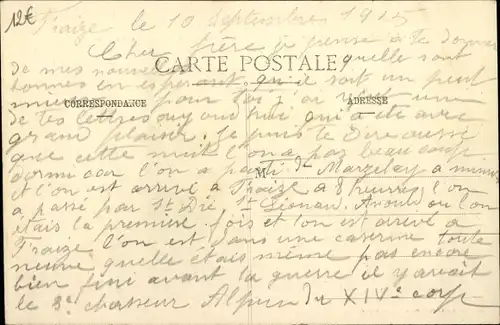 12€
Fraize le 10 Septembre 1915
Cher frère je pense a te donner
de mes nouvelles quelle sont
CARTE POSTALE
bonnes en esperant qu'il soit un peut
mieux pour toi j'ai
CORRESPONDANCE
ADRESSE
de tes lettres aujourd'hui qui a été avec
grand plaisir. Je puis te dire aussi
que cette nuit l'on a pas beaucoup
dormi car l'on a parti de Marzelay a minuit
M
et l'on est arrivé a Fraize a 8 heures l'on
a passé par St Dié, St Léonard, Anould ou l'on
etais la premiere fois et l'on est arrivé a
Fraize l'on est dans une caserne toute
neuve quelle etais même pas encore
bien fini avant la guerre il y avait
le 3e chasseur Alpin du XIVe corp